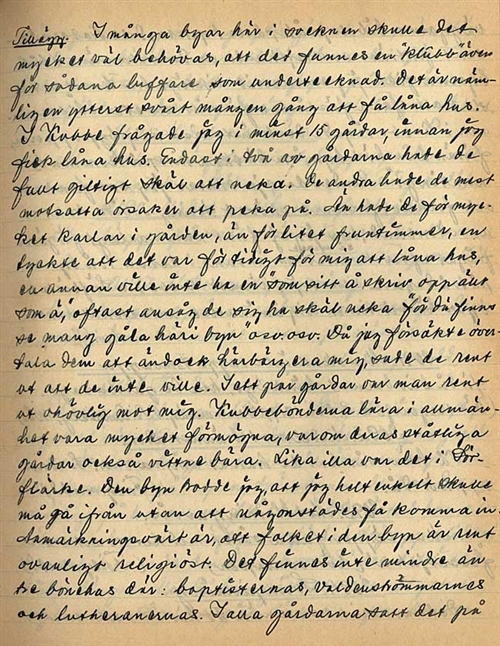 Tillägg. I många byar här i socknen skulle det
mycket väl behövas, att det funnes en "klubb" även
för sådana luffare som undertecknad. Det är näm-
ligen ytterst svårt mången gång att få låna hus.
I Kubbe frågade jag i minst 15 gårdar, innan jag
fick låna hus. Endast i två av gårdarna hade de
fullt giltigt skäl att neka. De andra hade de mest
motsatta orsaker att peka på. Än hade de för myc-
ket karlar i gården, än för litet fruntimmer, en
tyckte att det var för tidigt för mig att låna hus,
en annan ville inte ha en "som sitt å skriv opp allt
som ä", oftast ansåg de sig ha skäl neka "för dä finns
se mang gåla häri byn" osv. osv. Då jag försökte över-
tala dem att ändock härbärgera mig, sade de rent
ut att de inte ville. I ett par gårdar var man rent
ut ohövlig mot mig. Kubbebönderna lära i allmän-
het vara mycket förmögna, varom deras ståtliga
gårdar också vittne bära. Lika illa var det i
flärke. Den byn trodde jag, att jag helt enkelt skulle
må gå ifrån utan att någonstädes få komma in.
Anmärkningsvärt är, att folket i den byn är rent
ovanligt religiöst. Det finnes inte mindre än
tre bönehus där: baptisternas, valdenströmmarnes
och lutheranernas. I alla gårdarna satt det på